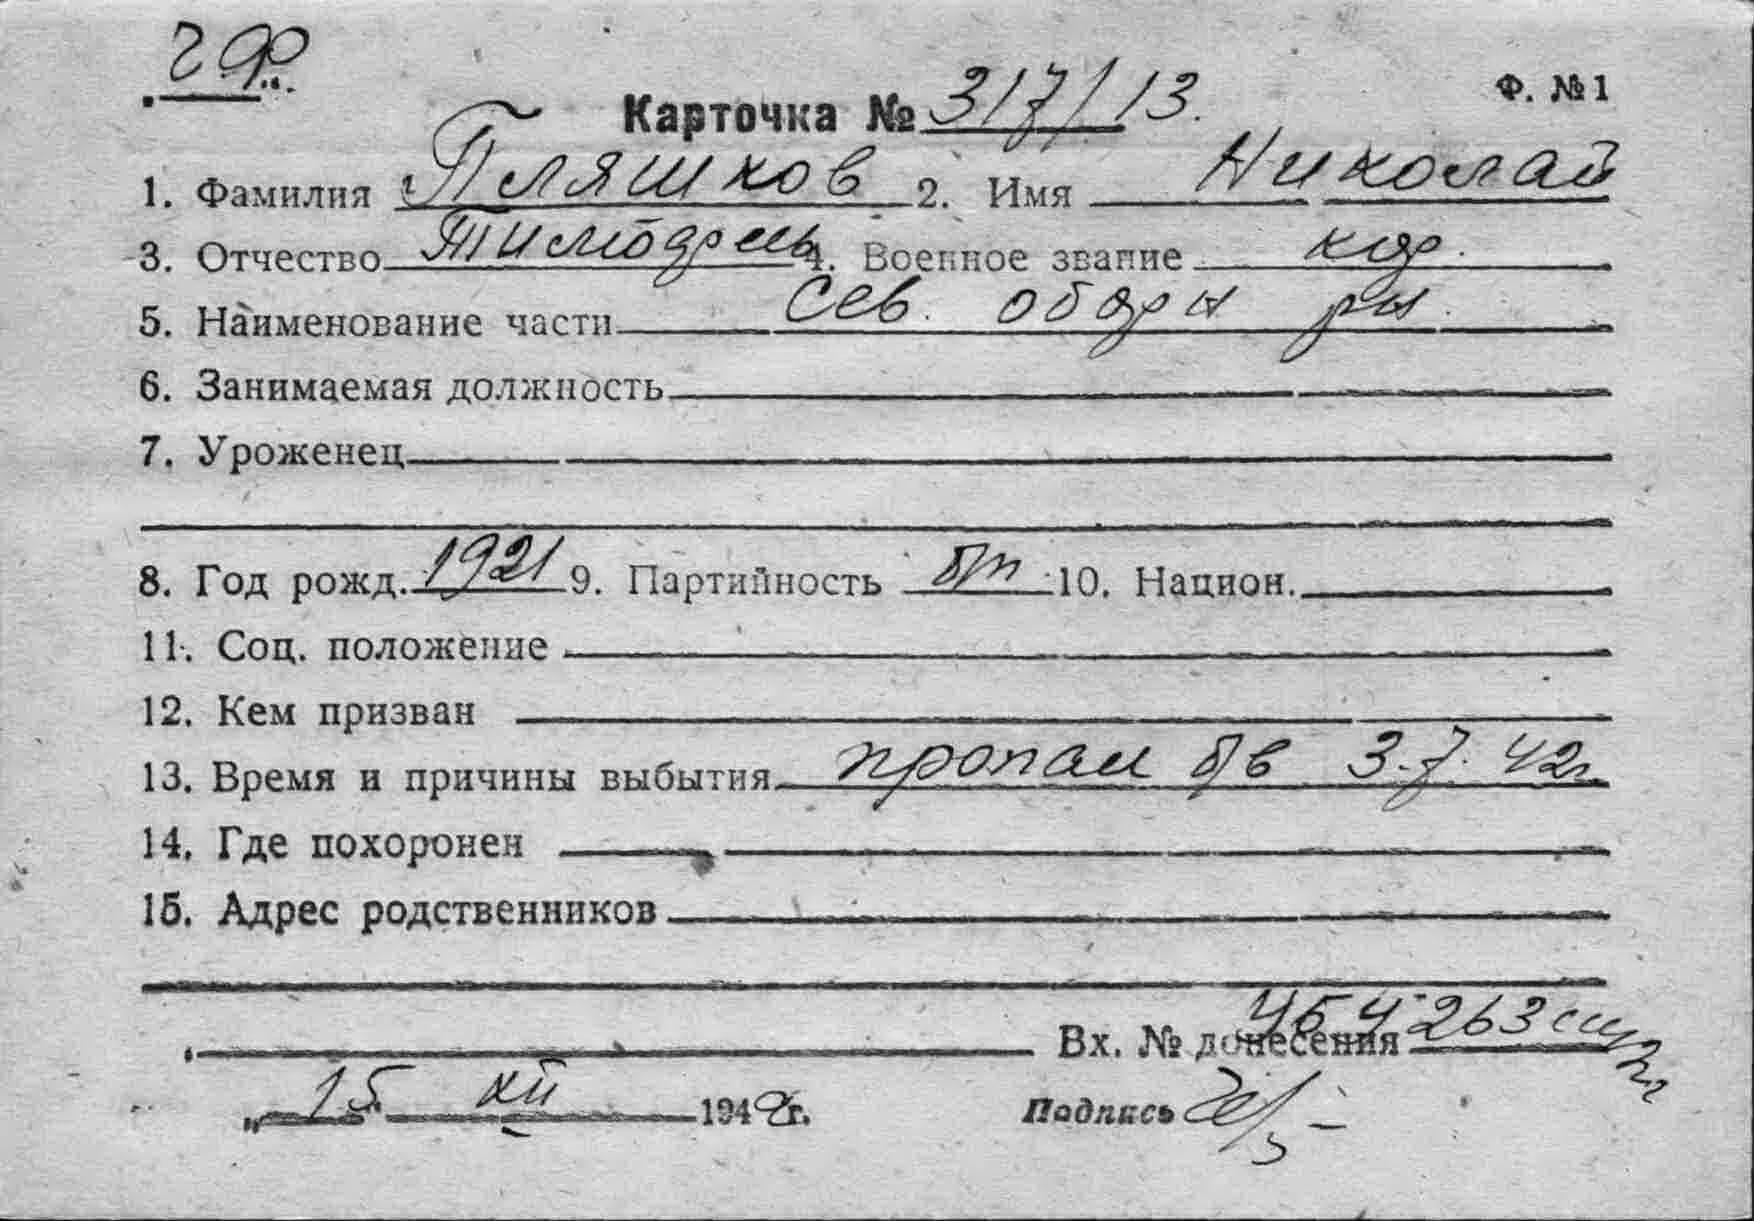 ЧФ
Карточка № 317/13. Ф. №1
1. Фамилия Пляшков 2. Имя Николай
3. Отчество 4. Военное звание
5. Наименование части Сев. рн.
6. Занимаемая должность
7. Уроженец
8. Год рожд. 1921 9. Партийность б/п 10. Национ.
11. Соц. положение
12. Кем призван
13. Время и причины выбытия пропал б/в 3.7.42г.
14. Где похоронен
15. Адрес родственников
Вх. № донесения
„15“ XII 194 г. Подпись